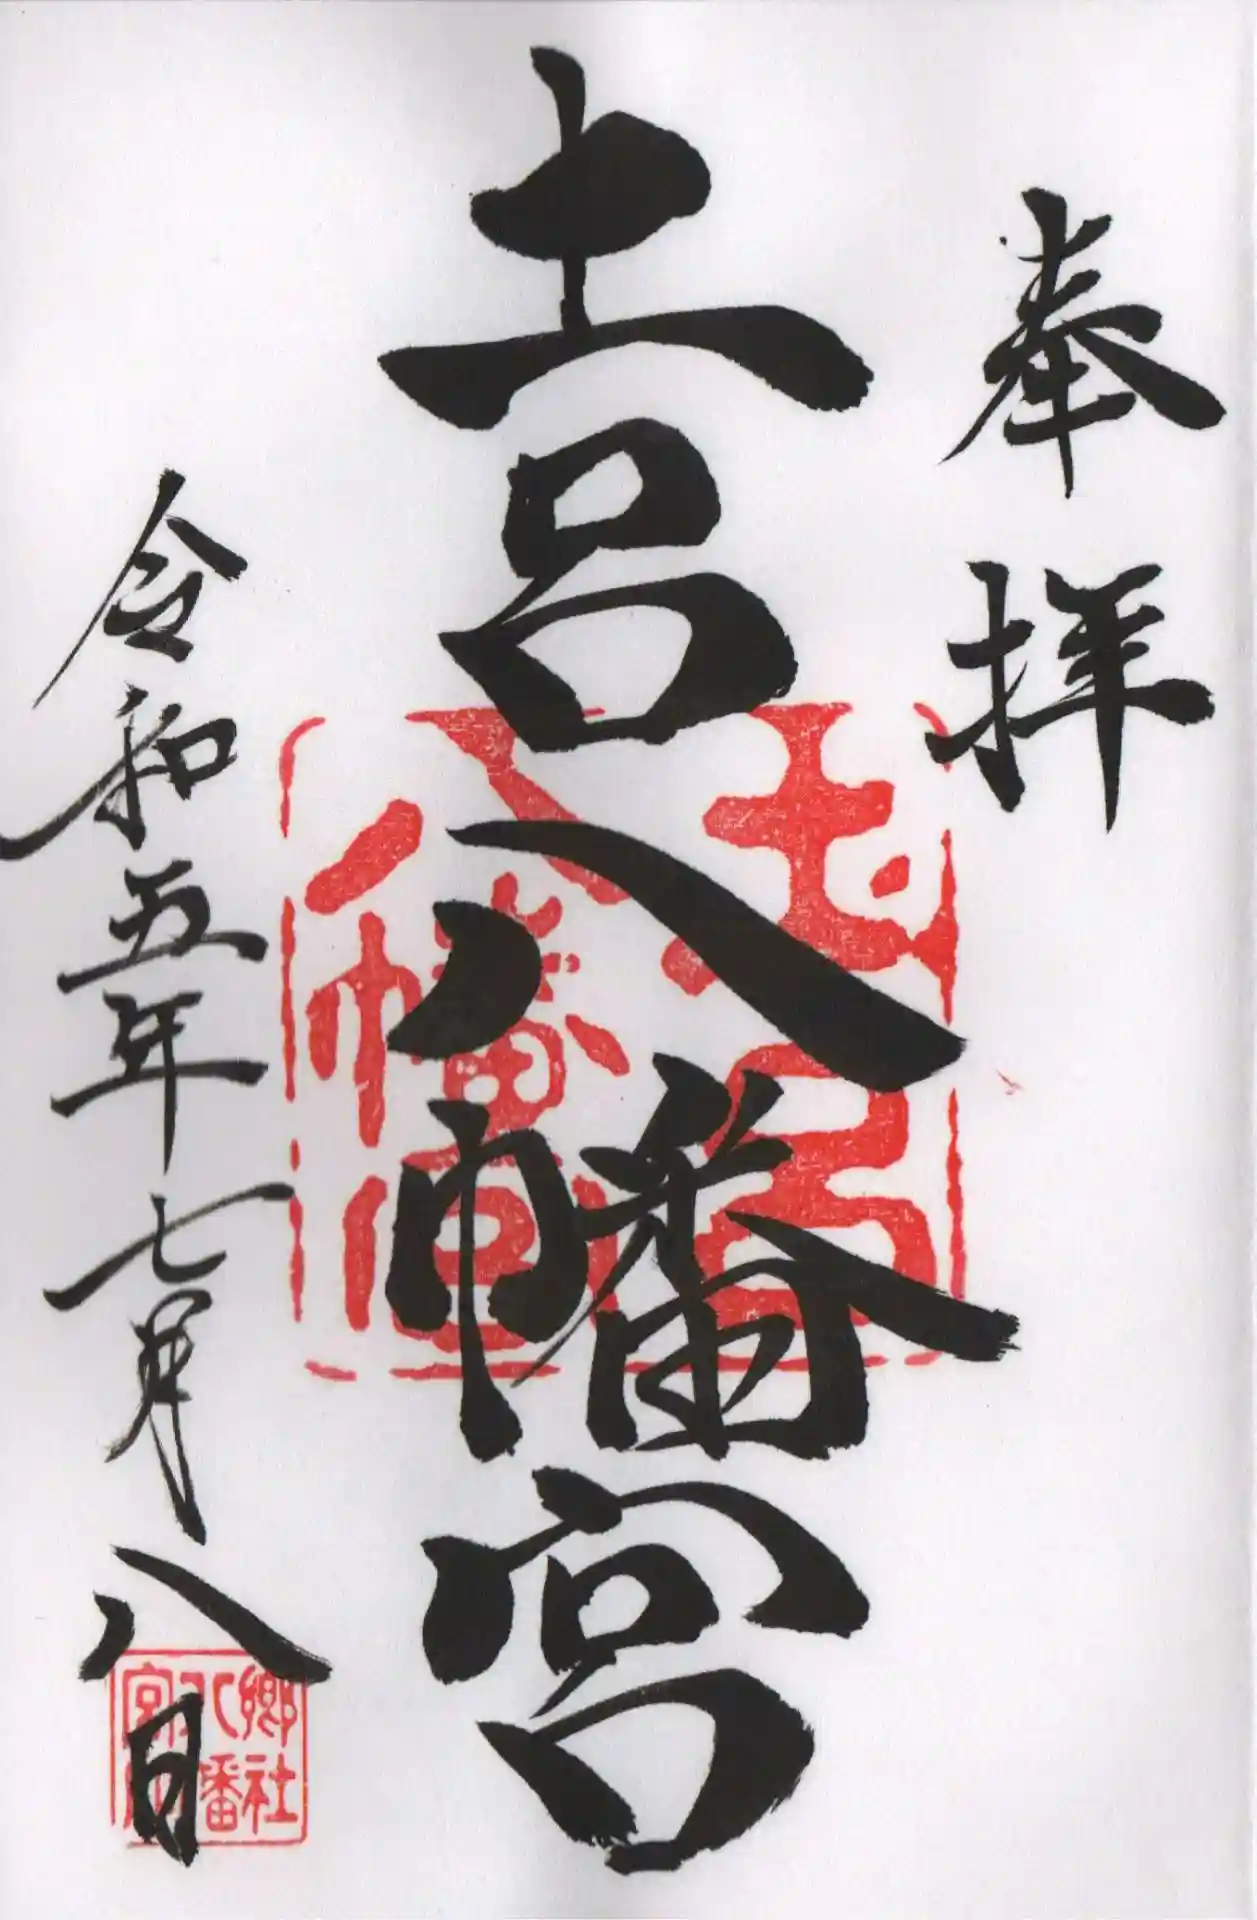 奉拝
土呂八幡宮
令和五年七月八日
土呂
八幡宮
郷社
八幡